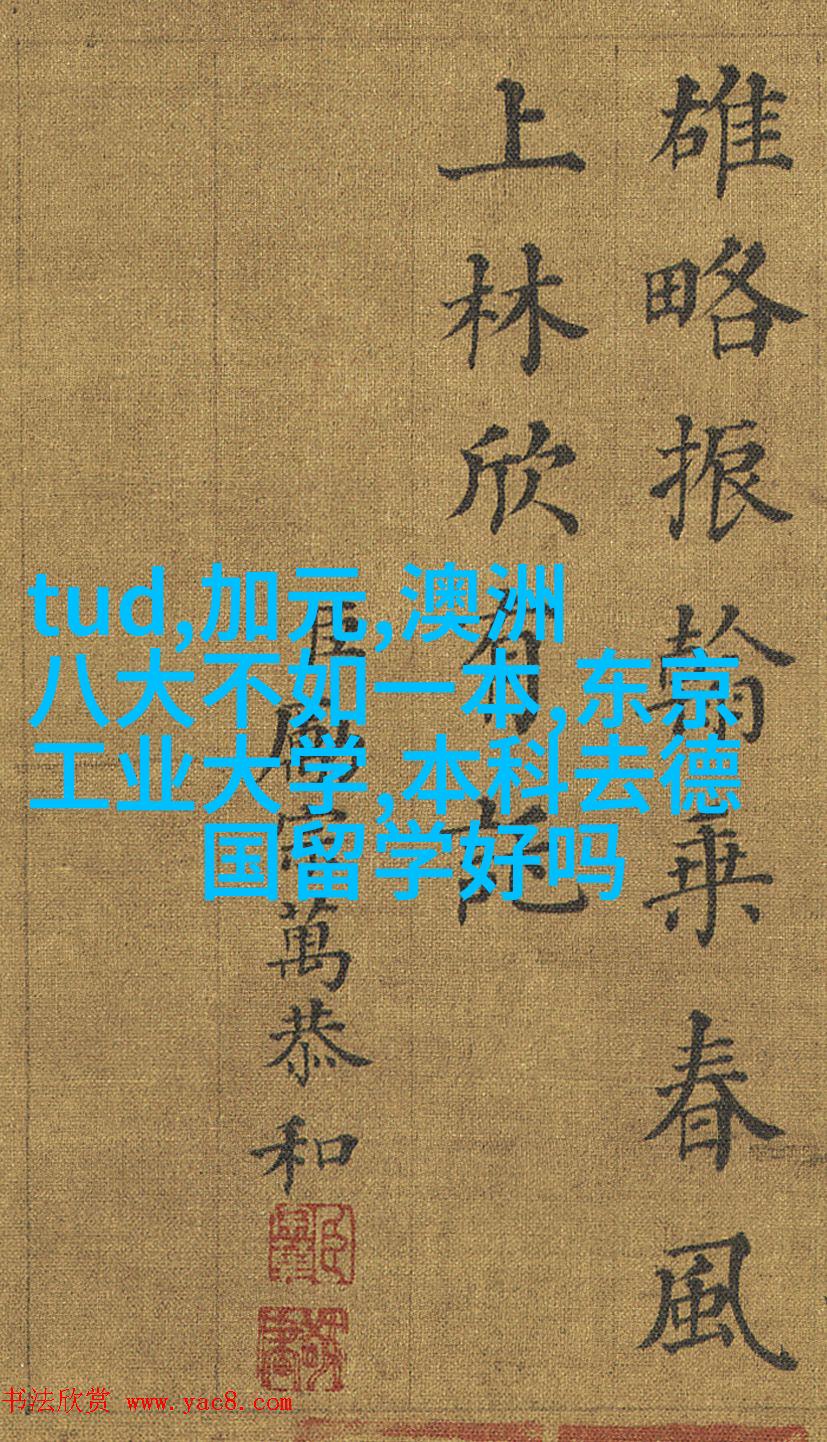 雄略振翰乗春風
上林欣有託
臣勵宗萬恭和
tud,加元,澳洲
八大不如一本,东京
工业大学,本科去德
国留学好吗
书法欣赏 www.yac8.com